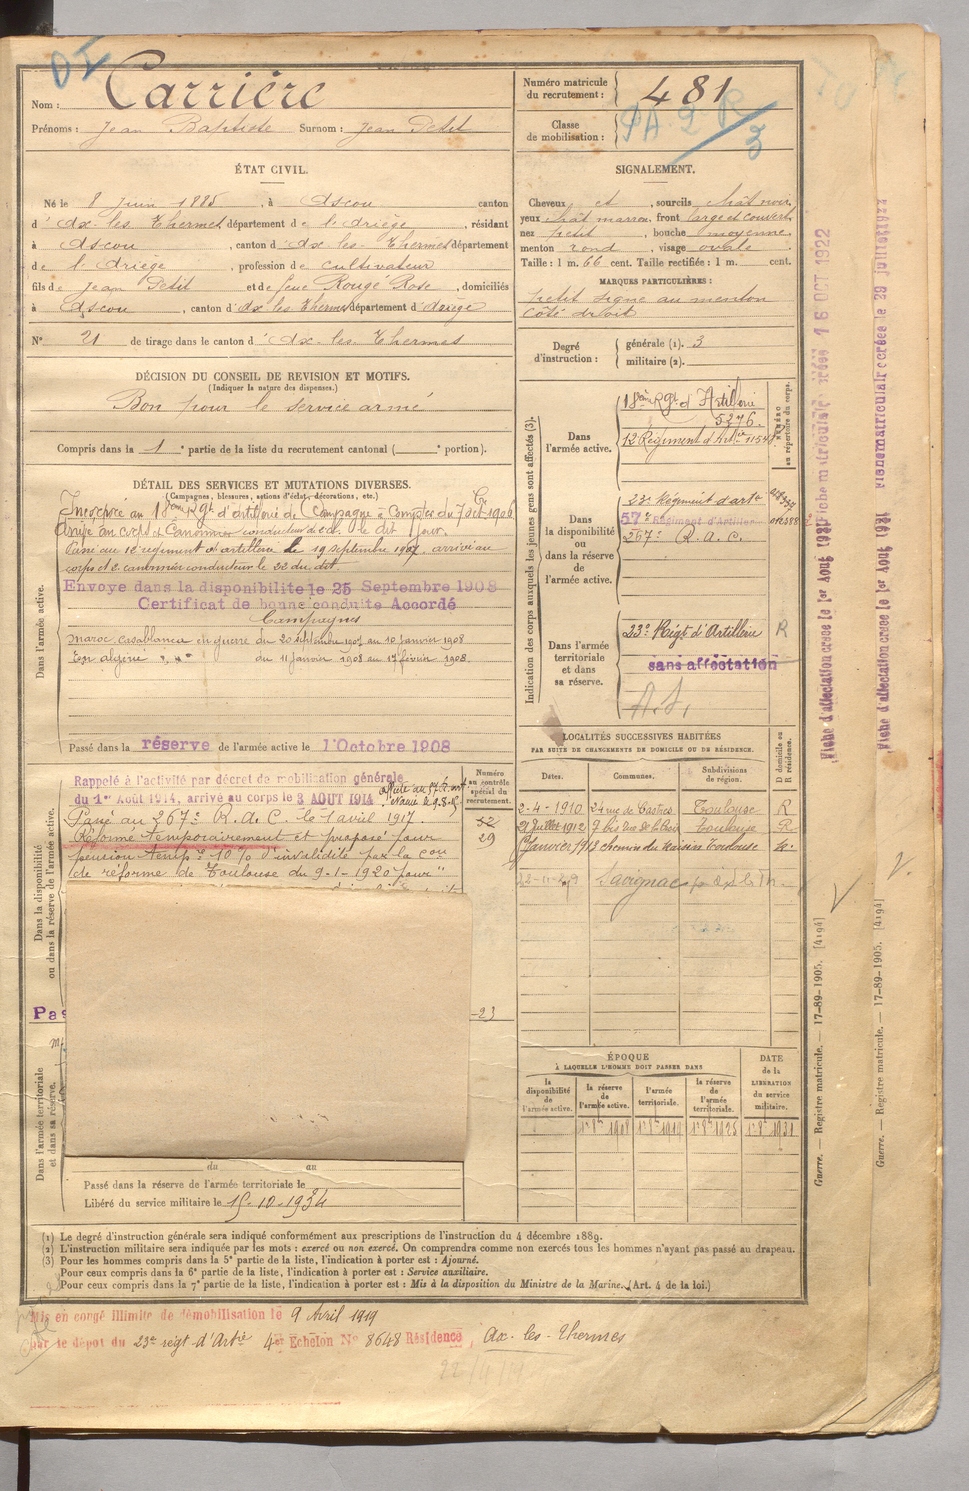 Nom : Carrière
Prénoms : Jean Baptiste Surnom : Jean Petit
Numéro matricule du recrutement : 481
Classe de mobilisation :
ÉTAT CIVIL.
Né le 8 Juin 1885, à Ascou canton
d'Ax-les-Thermes, département de l'Ariège, résidant
à Ascou, canton d'Ax-les-Thermes département
de l'Ariège, profession de cultivateur
fils de Jean Petit et de feue Rouge Rose, domiciliés
à Ascou, canton d'Ax les Thermes département d'Ariège
N° 21 de tirage dans le canton d'Ax-les-Thermes
SIGNALEMENT.
Cheveux et, sourcils chât noir
yeux chât marron, front large et couvert
nez petit, bouche moyenne
menton rond, visage ovale.
Taille : 1 m. 66 cent. Taille rectifiée : 1 m. cent.
MARQUES PARTICULIÈRES :
Petit signe au menton
Côté droit
Degré d'instruction : générale (1). 3
militaire (2).
DÉCISION DU CONSEIL DE REVISION ET MOTIFS.
(Indiquer la nature des dispenses.)
Bon pour le service armé
Compris dans la 1e partie de la liste du recrutement cantonal ( e portion).
DÉTAIL DES SERVICES ET MUTATIONS DIVERSES.
(Campagnes, blessures, actions d'éclat, décorations, etc.)
Dans l'armée active.
Incorporé au 18ème Rgt d'artillerie de Campagne à Compter du 7 oct. 1906
Arrivé au corps et Canonnier conducteur le dit jour.
Passé au 12e régiment d'artillerie le 19 septembre 1907 arrivé au
corps et 2e canonnier conducteur le 22 du dit.
Envoyé dans la disponibilité le 25 Septembre 1908
Certificat de bonne conduite Accordé
Campagnes
Maroc Casablanca en guerre du 20 septembre 1907 au 10 Janvier 1908
En algérie " " du 11 Janvier 1908 au 17 février 1908.
Passé dans la réserve de l'armée active le 1er Octobre 1908
Indication des corps auxquels les jeunes gens sont affectés (3).
NUMÉRO au répertoire du corps.
Dans l'armée active.
18ème Rgt d'Artillerie
5376.
12 Régiment d'Art.ie
Dans la disponibilité ou dans la réserve de l'armée active.
23e Régiment d'artie
57e Régiment d'Artillerie
267e R.A.C.
Dans l'armée territoriale et dans sa réserve.
23e Régt d'Artillerie R
sans affectation
A.S.
Dans la disponibilité ou dans la réserve de l'armée active.
Numéro au contrôle spécial du recrutement.
52
29
Rappelé à l'activité par décret de mobilisation générale
du 1er Août 1914, arrivé au corps le 3 AOUT 1914
Passé au 267e R.A.C. le 1 avril 1917.
Réformé temporairement et proposé pour
pension tempre 10 % d'invalidité par la Con
de réforme de Toulouse du 9-1-1920 pour "
Pas
23
Dans l'armée territoriale et dans sa réserve.
du au
Passé dans la réserve de l'armée territoriale le
Libéré du service militaire le 15-10-1934
LOCALITÉS SUCCESSIVES HABITÉES
PAR SUITE DE CHANGEMENTS DE DOMICILE OU DE RÉSIDENCE.
Dates. Communes. Subdivisions de région. D domicile ou R résidence.
2-4-1910 24 rue de Castres Toulouse R
21 Juillet 1912 9 bis Toulouse R
Janvier 1913 chemin du Raisin Toulouse
Savignac
ÉPOQUE
À LAQUELLE L'HOMME DOIT PASSER DANS
la disponibilité de l'armée active. la réserve de l'armée active. l'armée territoriale. la réserve de l'armée territoriale.
DATE de la LIBÉRATION du service militaire.
1er 8bre 1908 1er 8bre 1919 1er 8bre 1925 1er 8bre 1931
(1) Le degré d'instruction générale sera indiqué conformément aux prescriptions de l'instruction du 4 décembre 1889.
(2) L'instruction militaire sera indiquée par les mots : exercé ou non exercé. On comprendra comme non exercés tous les hommes n'ayant pas passé au drapeau.
(3) Pour les hommes compris dans la 5e partie de la liste, l'indication à porter est : Ajourné.
Pour ceux compris dans la 6e partie de la liste, l'indication à porter est : Service auxiliaire.
Pour ceux compris dans la 7e partie de la liste, l'indication à porter est : Mis à la disposition du Ministre de la Marine. (Art. 4 de la loi.)
Mis en congé illimité de démobilisation le 9 Avril 1919
Par le dépôt du 23e régt d'Artie 4e Echelon N° 8648 Résidence, Ax-les-Thermes
Fiche d'affectation créée le 1er Août 1921 Fiche matriculaire créée 16 OCT 1922
Guerre. — Registre matricule. — 17-89-1905. [4194]
Fiche d'affectation créée le 1er Août 1921 Fiche matriculaire créée le
Guerre. — Registre matricule. — 17-89-1905. [4194]